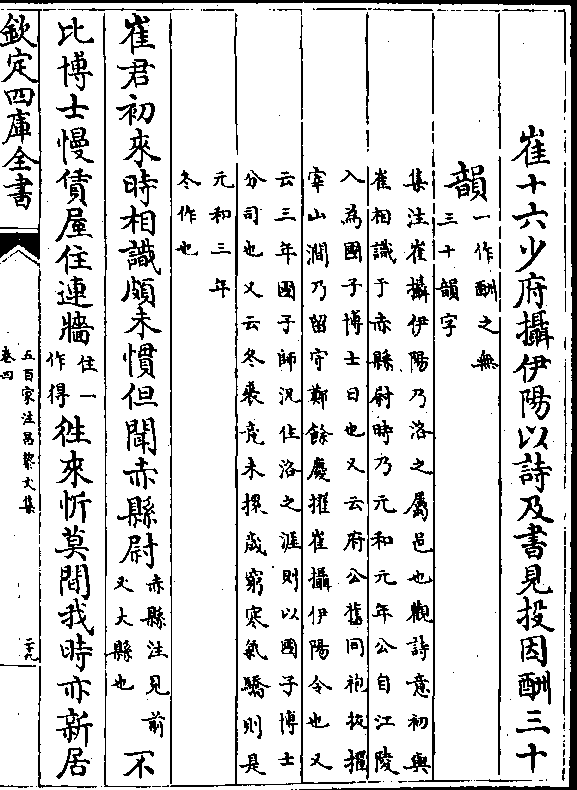 崔十六少府攝伊陽以詩及書見投因酬三十
韻一作酬之無
三十韻字
集注崔攝伊陽乃洛之屬邑也觀詩意初與
崔相識于赤縣尉時乃元和元年公自江陵
入為國子博士日也又云府公舊同袍拔擢
宰山澗乃留守鄭餘慶擢崔攝伊陽令也又
云三年國子師況住洛之涯則以國子博士
分司也又云冬裘竟未撰歲窮寒氣驕則是
元和三年
冬作也
崔君初來時相識頗未慣但聞赤縣尉赤縣注見前
又大縣也不
比博士慢賃屋住連牆住一
作得往來忻莫間我時亦新居
欽定四庫全書
五百家注昌黎文集
卷四
二十九